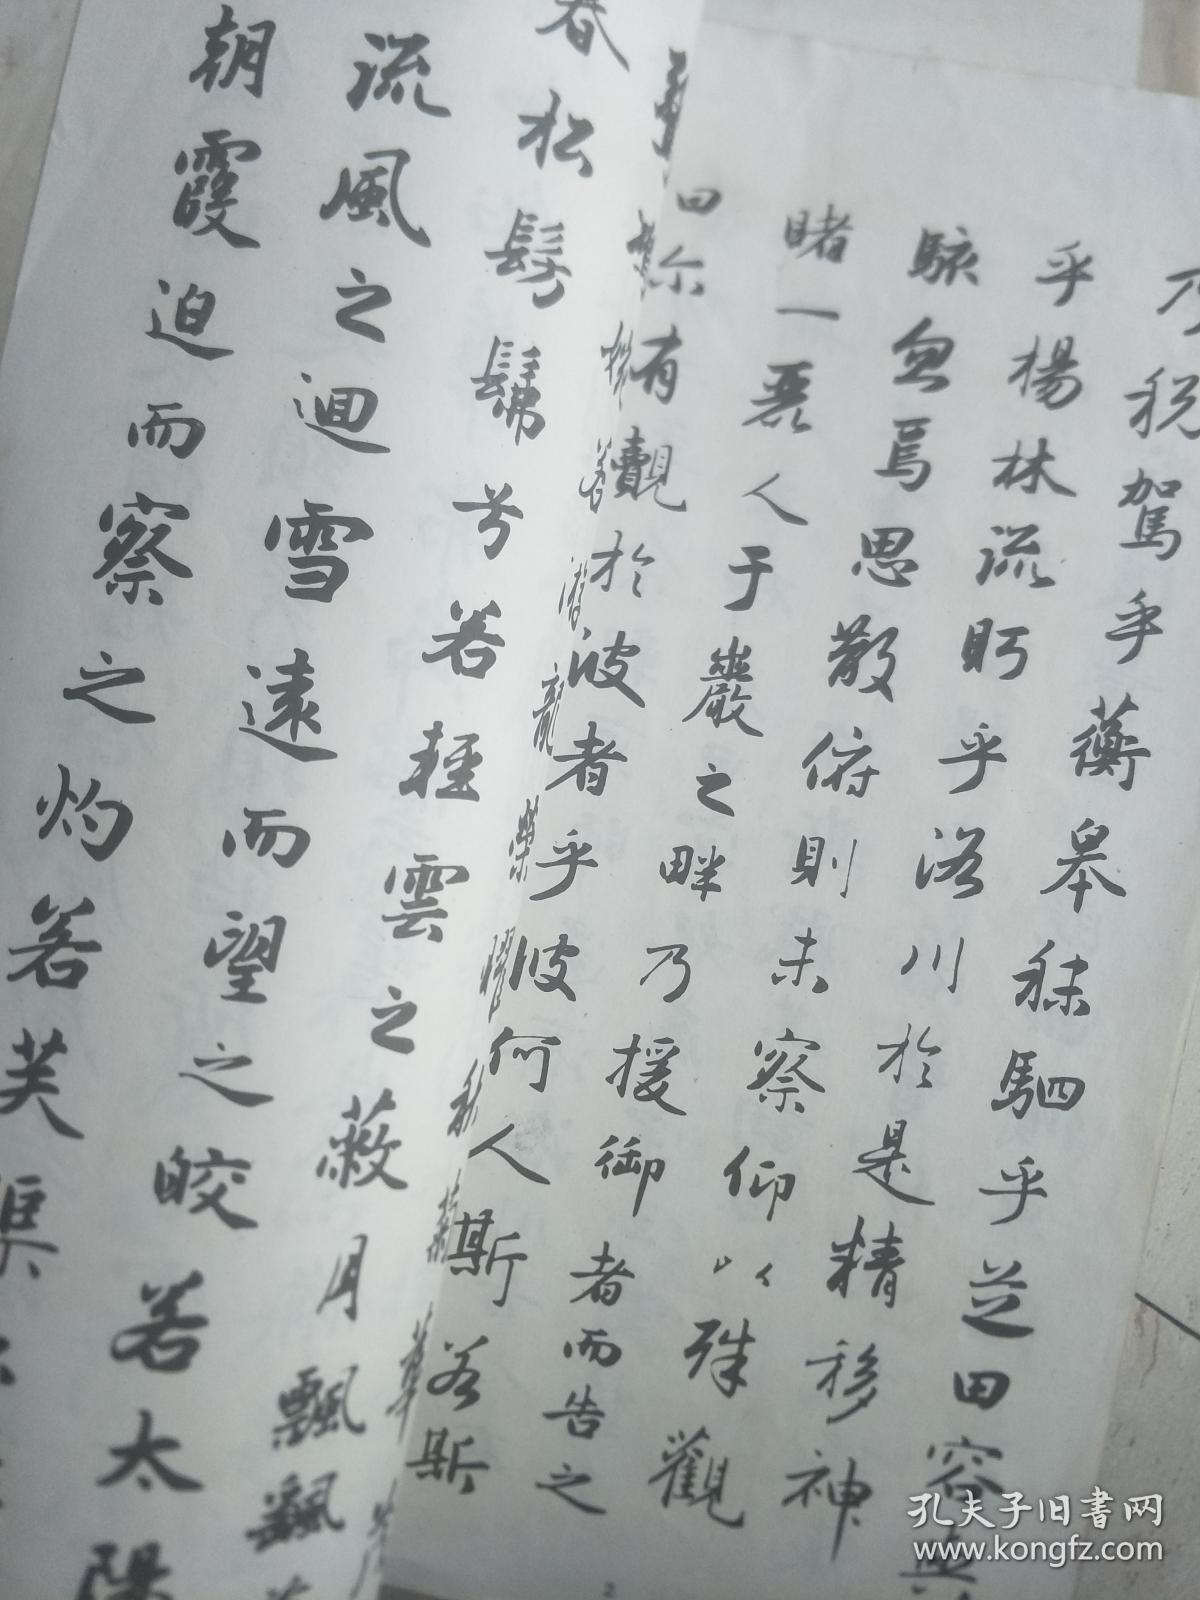 乃税駕乎蘅皋秣駟乎芝田容與
乎楊林流眄乎洛川於是精移神
駭忽焉思散俯則未察仰以殊觀
睹一麗人于巖之畔乃援御者而告之
曰尔有覿於彼者乎彼何人斯若斯
游龍榮曜秋菊華
春松髣髴兮若輕雲之蔽月飄飄
流風之迴雪遠而望之皎若太陽
朝霞迫而察之灼若芙渠
2
孔夫子旧书网
www.kongfz.com